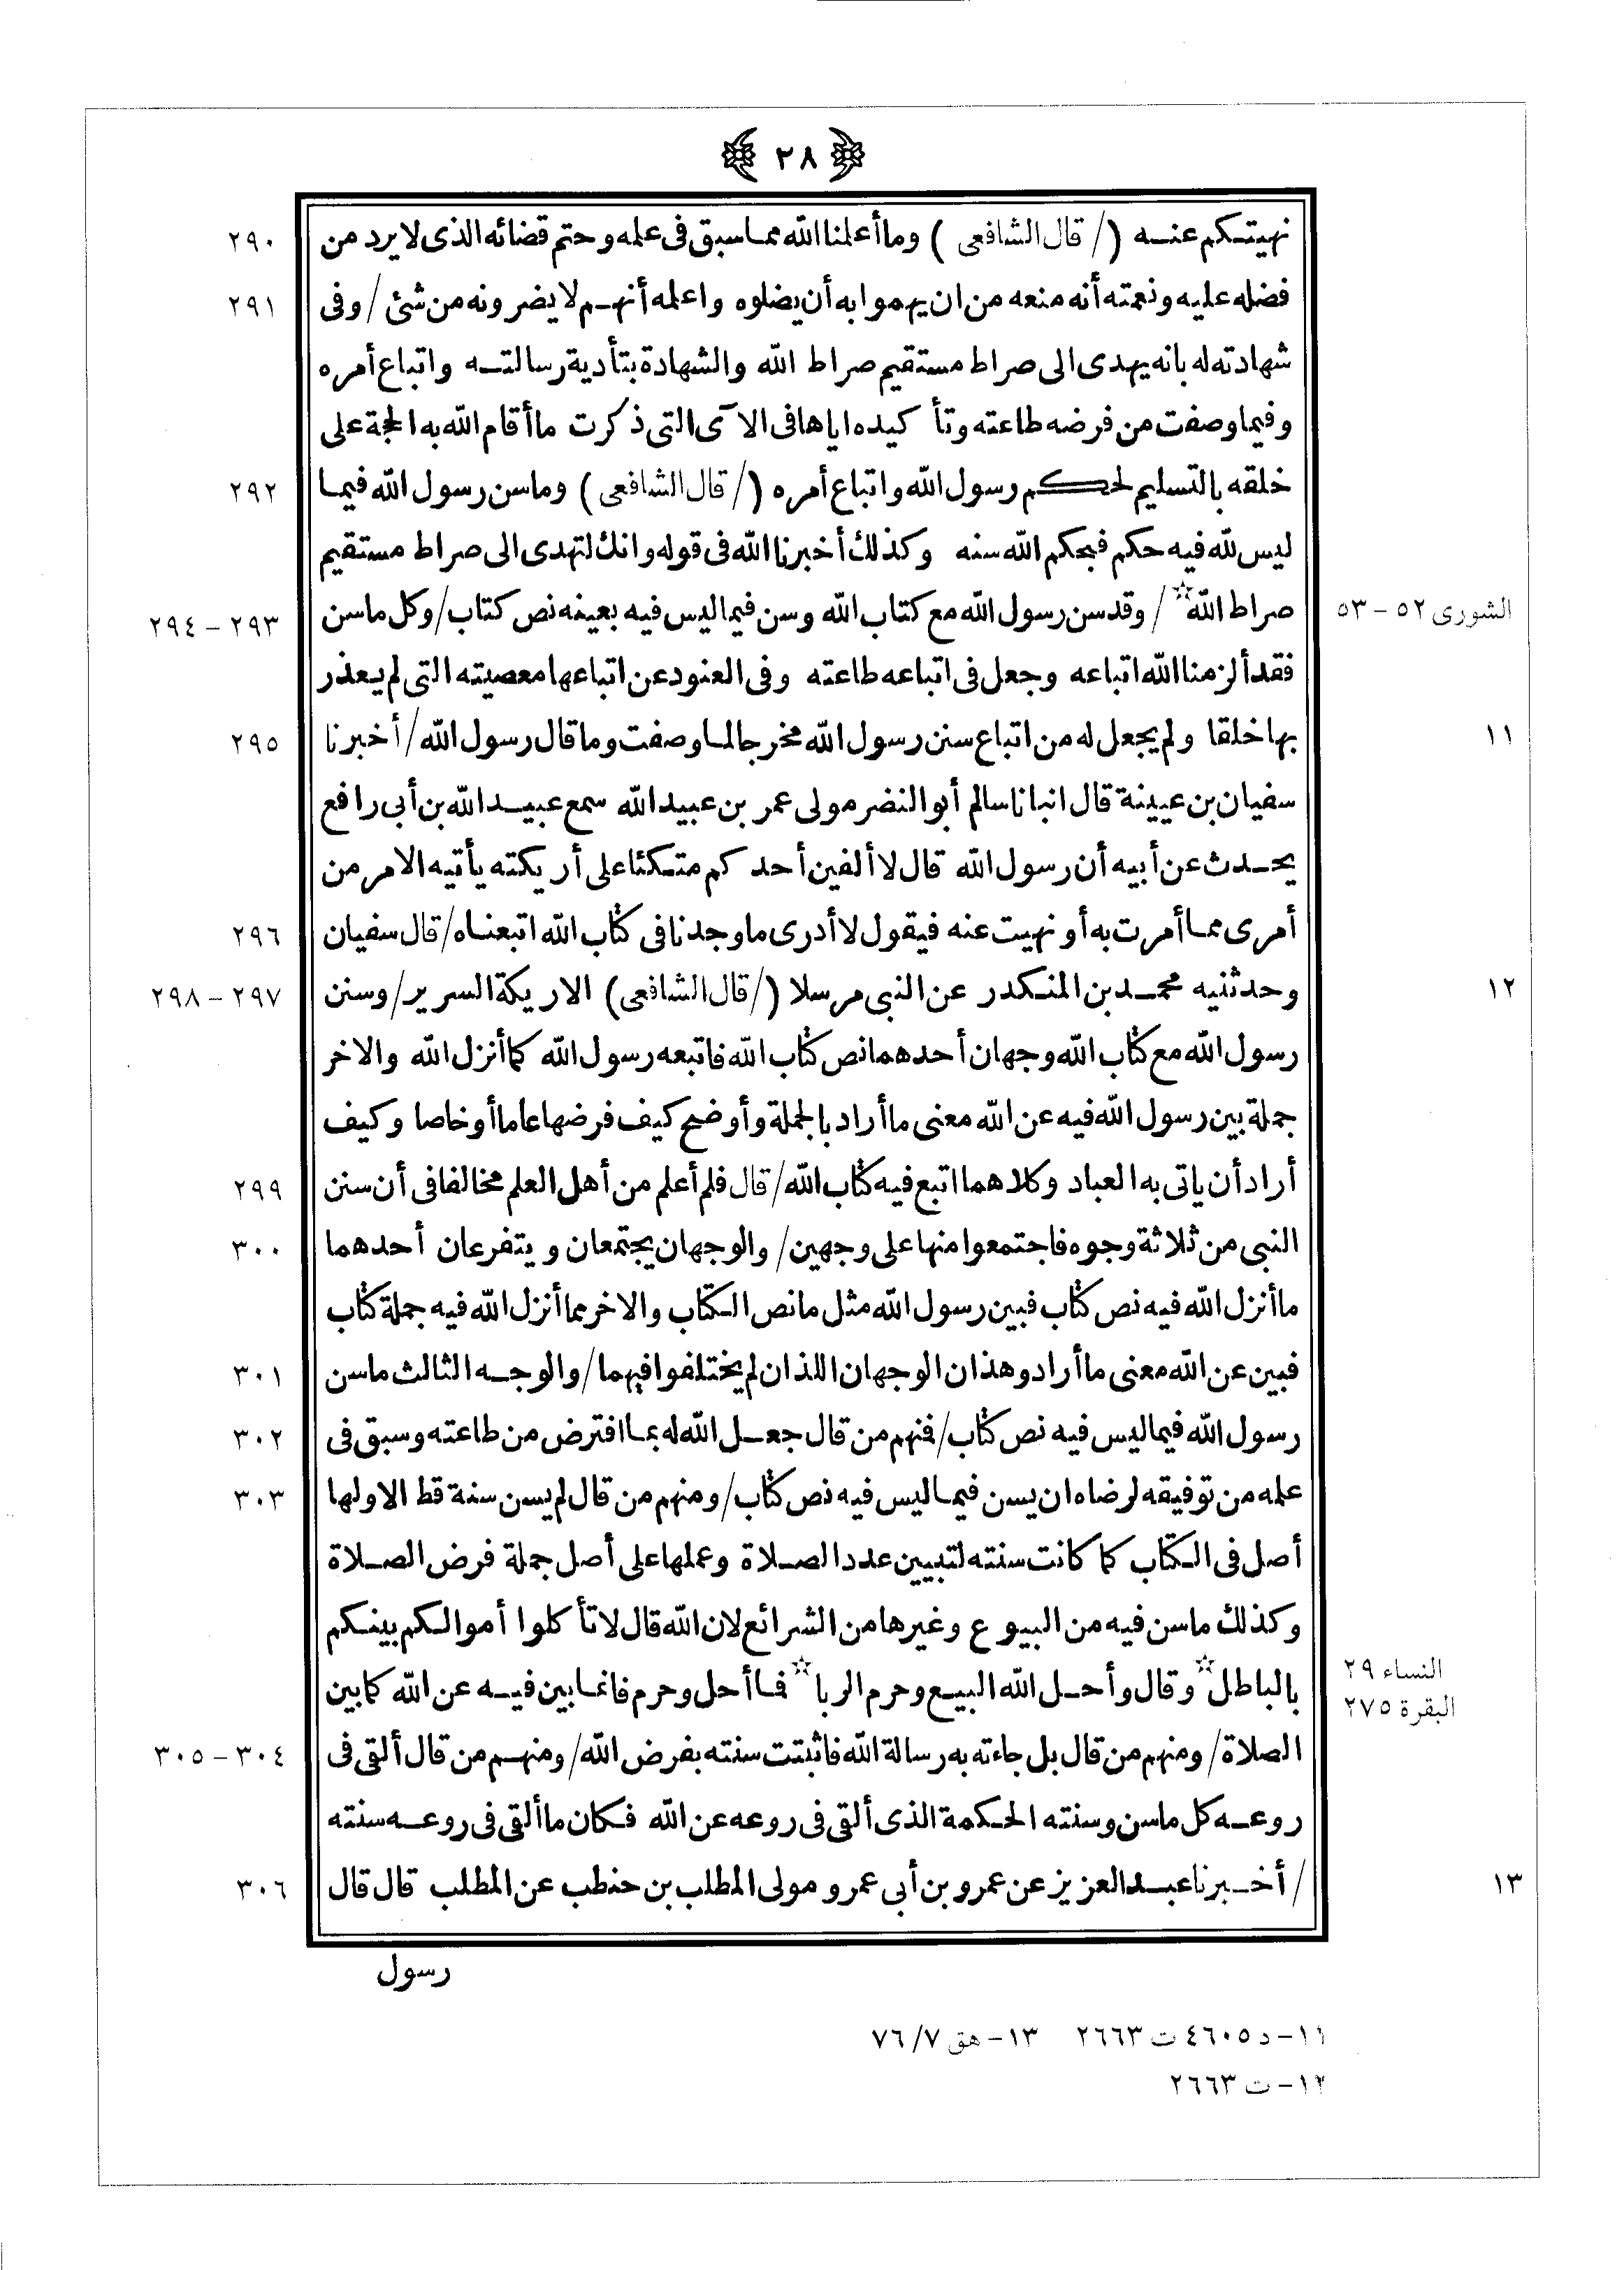 ٢٨
نهيتكم عنه (/ قال الشافعى ) وما أعلمنا الله مما سبق فى علمه وحتم قضائه الذى لا يرد من ٢٩٠
فضله عليه ونعمته أنه منعه من ان يهموا به أن يضلوه واعلمه أنهم لا يضرونه من شئ / وفى ٢٩١
شهادته له بانه يهدى الى صراط مستقيم صراط الله والشهادة بتأدية رسالته واتباع أمره
وفيما وصفت من فرضه طاعته وتأكيده اياها فى الآى التى ذكرت ما أقام الله به الحجة على
خلقه بالتسليم لحكم رسول الله واتباع أمره (/ قال الشافعى ) وما سن رسول الله فيما ٢٩٢
ليس لله فيه حكم فبحكم الله سنه وكذلك أخبرنا الله فى قوله وانك لتهدى الى صراط مستقيم
الشورى ٥٢ – ٥٣ صراط الله☆ / وقد سن رسول الله مع كتاب الله وسن فيما ليس فيه بعينه نص كتاب / وكل ما سن ٢٩٣ – ٢٩٤
فقد ألزمنا الله اتباعه وجعل فى اتباعه طاعته وفى العنود عن اتباعها معصيته التى لم يعذر
١١ بها خلقا ولم يجعل له من اتباع سنن رسول الله مخرجا لما وصفت وما قال رسول الله / أخبرنا ٢٩٥
سفيان بن عيينة قال انبانا سالم أبو النضر مولى عمر بن عبيد الله سمع عبيد الله بن أبى رافع
يحدث عن أبيه أن رسول الله قال لا ألفين أحدكم متكئا على أريكته يأتيه الامر من
أمرى مما أمرت به أو نهيت عنه فيقول لا أدرى ما وجدنا فى كتاب الله اتبعناه / قال سفيان ٢٩٦
١٢ وحدثنيه محمد بن المنكدر عن النبى مرسلا (/ قال الشافعى ) الاريكة السرير / وسنن ٢٩٧ – ٢٩٨
رسول الله مع كتاب الله وجهان أحدهما نص كتاب الله فاتبعه رسول الله كما أنزل الله والاخر
جملة بين رسول الله فيه عن الله معنى ما أراد بالجملة وأوضح كيف فرضها عاما أو خاصا وكيف
أراد أن ياتى به العباد وكلاهما اتبع فيه كتاب الله / قال فلم أعلم من أهل العلم مخالفا فى أن سنن ٢٩٩
النبى من ثلاثة وجوه فاجتمعوا منها على وجهين / والوجهان يجتمعان ويتفرعان أحدهما ٣٠٠
ما أنزل الله فيه نص كتاب فبين رسول الله مثل ما نص الكتاب والاخر مما أنزل الله فيه جملة كتاب
فبين عن الله معنى ما أراد وهذان الوجهان اللذان لم يختلفوا فيهما / والوجه الثالث ما سن ٣٠١
رسول الله فيما ليس فيه نص كتاب / فمنهم من قال جعل الله له بما افترض من طاعته وسبق فى ٣٠٢
علمه من توفيقه لرضاه ان يسن فيما ليس فيه نص كتاب / ومنهم من قال لم يسن سنة قط الا ولها ٣٠٣
أصل فى الكتاب كما كانت سنته لتبيين عدد الصلاة وعملها على أصل جملة فرض الصلاة
وكذلك ما سن فيه من البيوع وغيرها من الشرائع لان الله قال لا تأكلوا أموالكم بينكم
النساء ٢٩ بالباطل☆ وقال وأحل الله البيع وحرم الربا☆ فما أحل وحرم فانما بين فيه عن الله كما بين
البقرة ٢٧٥
الصلاة / ومنهم من قال بل جاءته به رسالة الله فاثبتت سنته بفرض الله / ومنهم من قال ألقى فى ٣٠٤ – ٣٠٥
روعه كل ما سن وسنته الحكمة الذى ألقى فى روعه عن الله فكان ما ألقى فى روعه سنته
١٣ / أخبرنا عبد العزيز عن عمرو بن أبى عمرو مولى المطلب بن حنطب عن المطلب قال قال ٣٠٦
رسول
١١ – د ٤٦٠٥ ت ٢٦٦٣ ١٣ – هق ٧/ ٧٦
١٢ – ت ٢٦٦٣